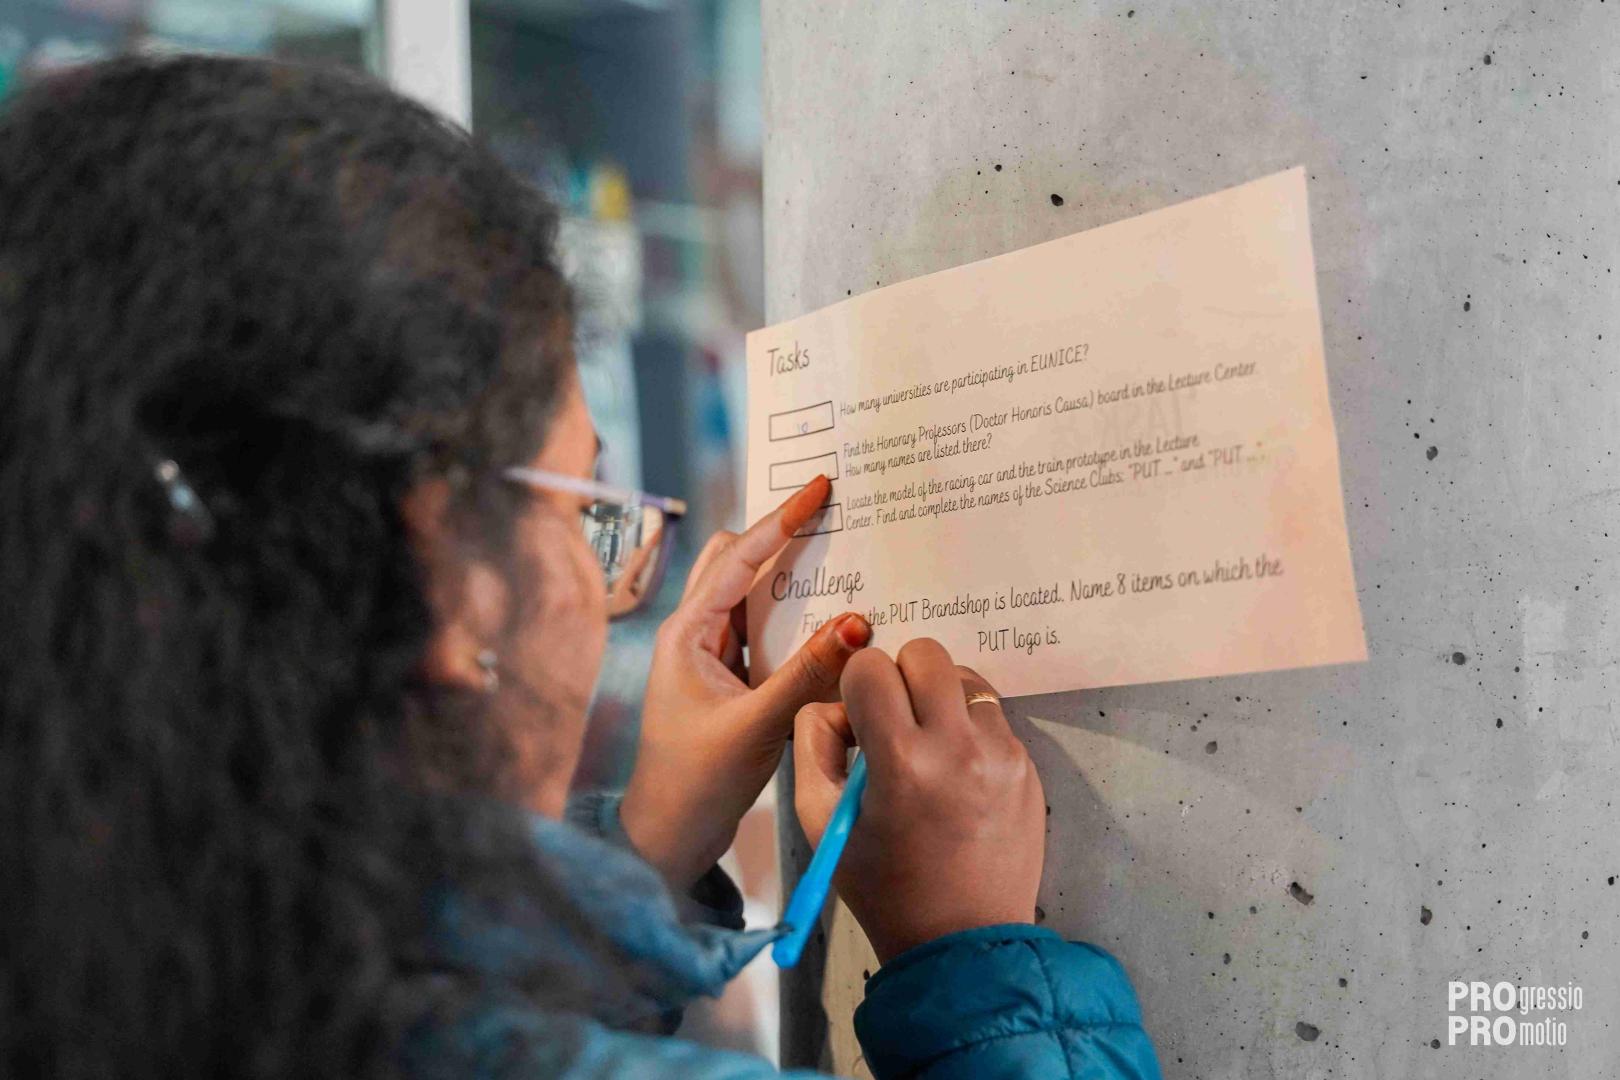 Tasks
10
How many universities are participating in EUNICE?
Find the Honorary Professors (Doctor Honoris Causa) board in the Lecture Center.
How many names are listed there?
Locate the model of the racing car and the train prototype in the Lecture
Center. Find and complete the names of the Science Clubs: "PUT ..." and "PUT ...".
Challenge
the PUT Brandshop is located. Name 8 items on which the
PUT logo is.
PROgressio
PROmotio